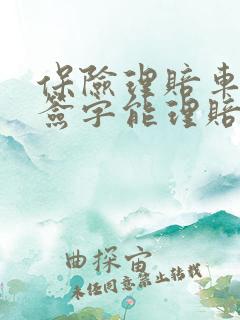 保險理賠車
簽字能理賠
曲探宙
未经同意禁止转载